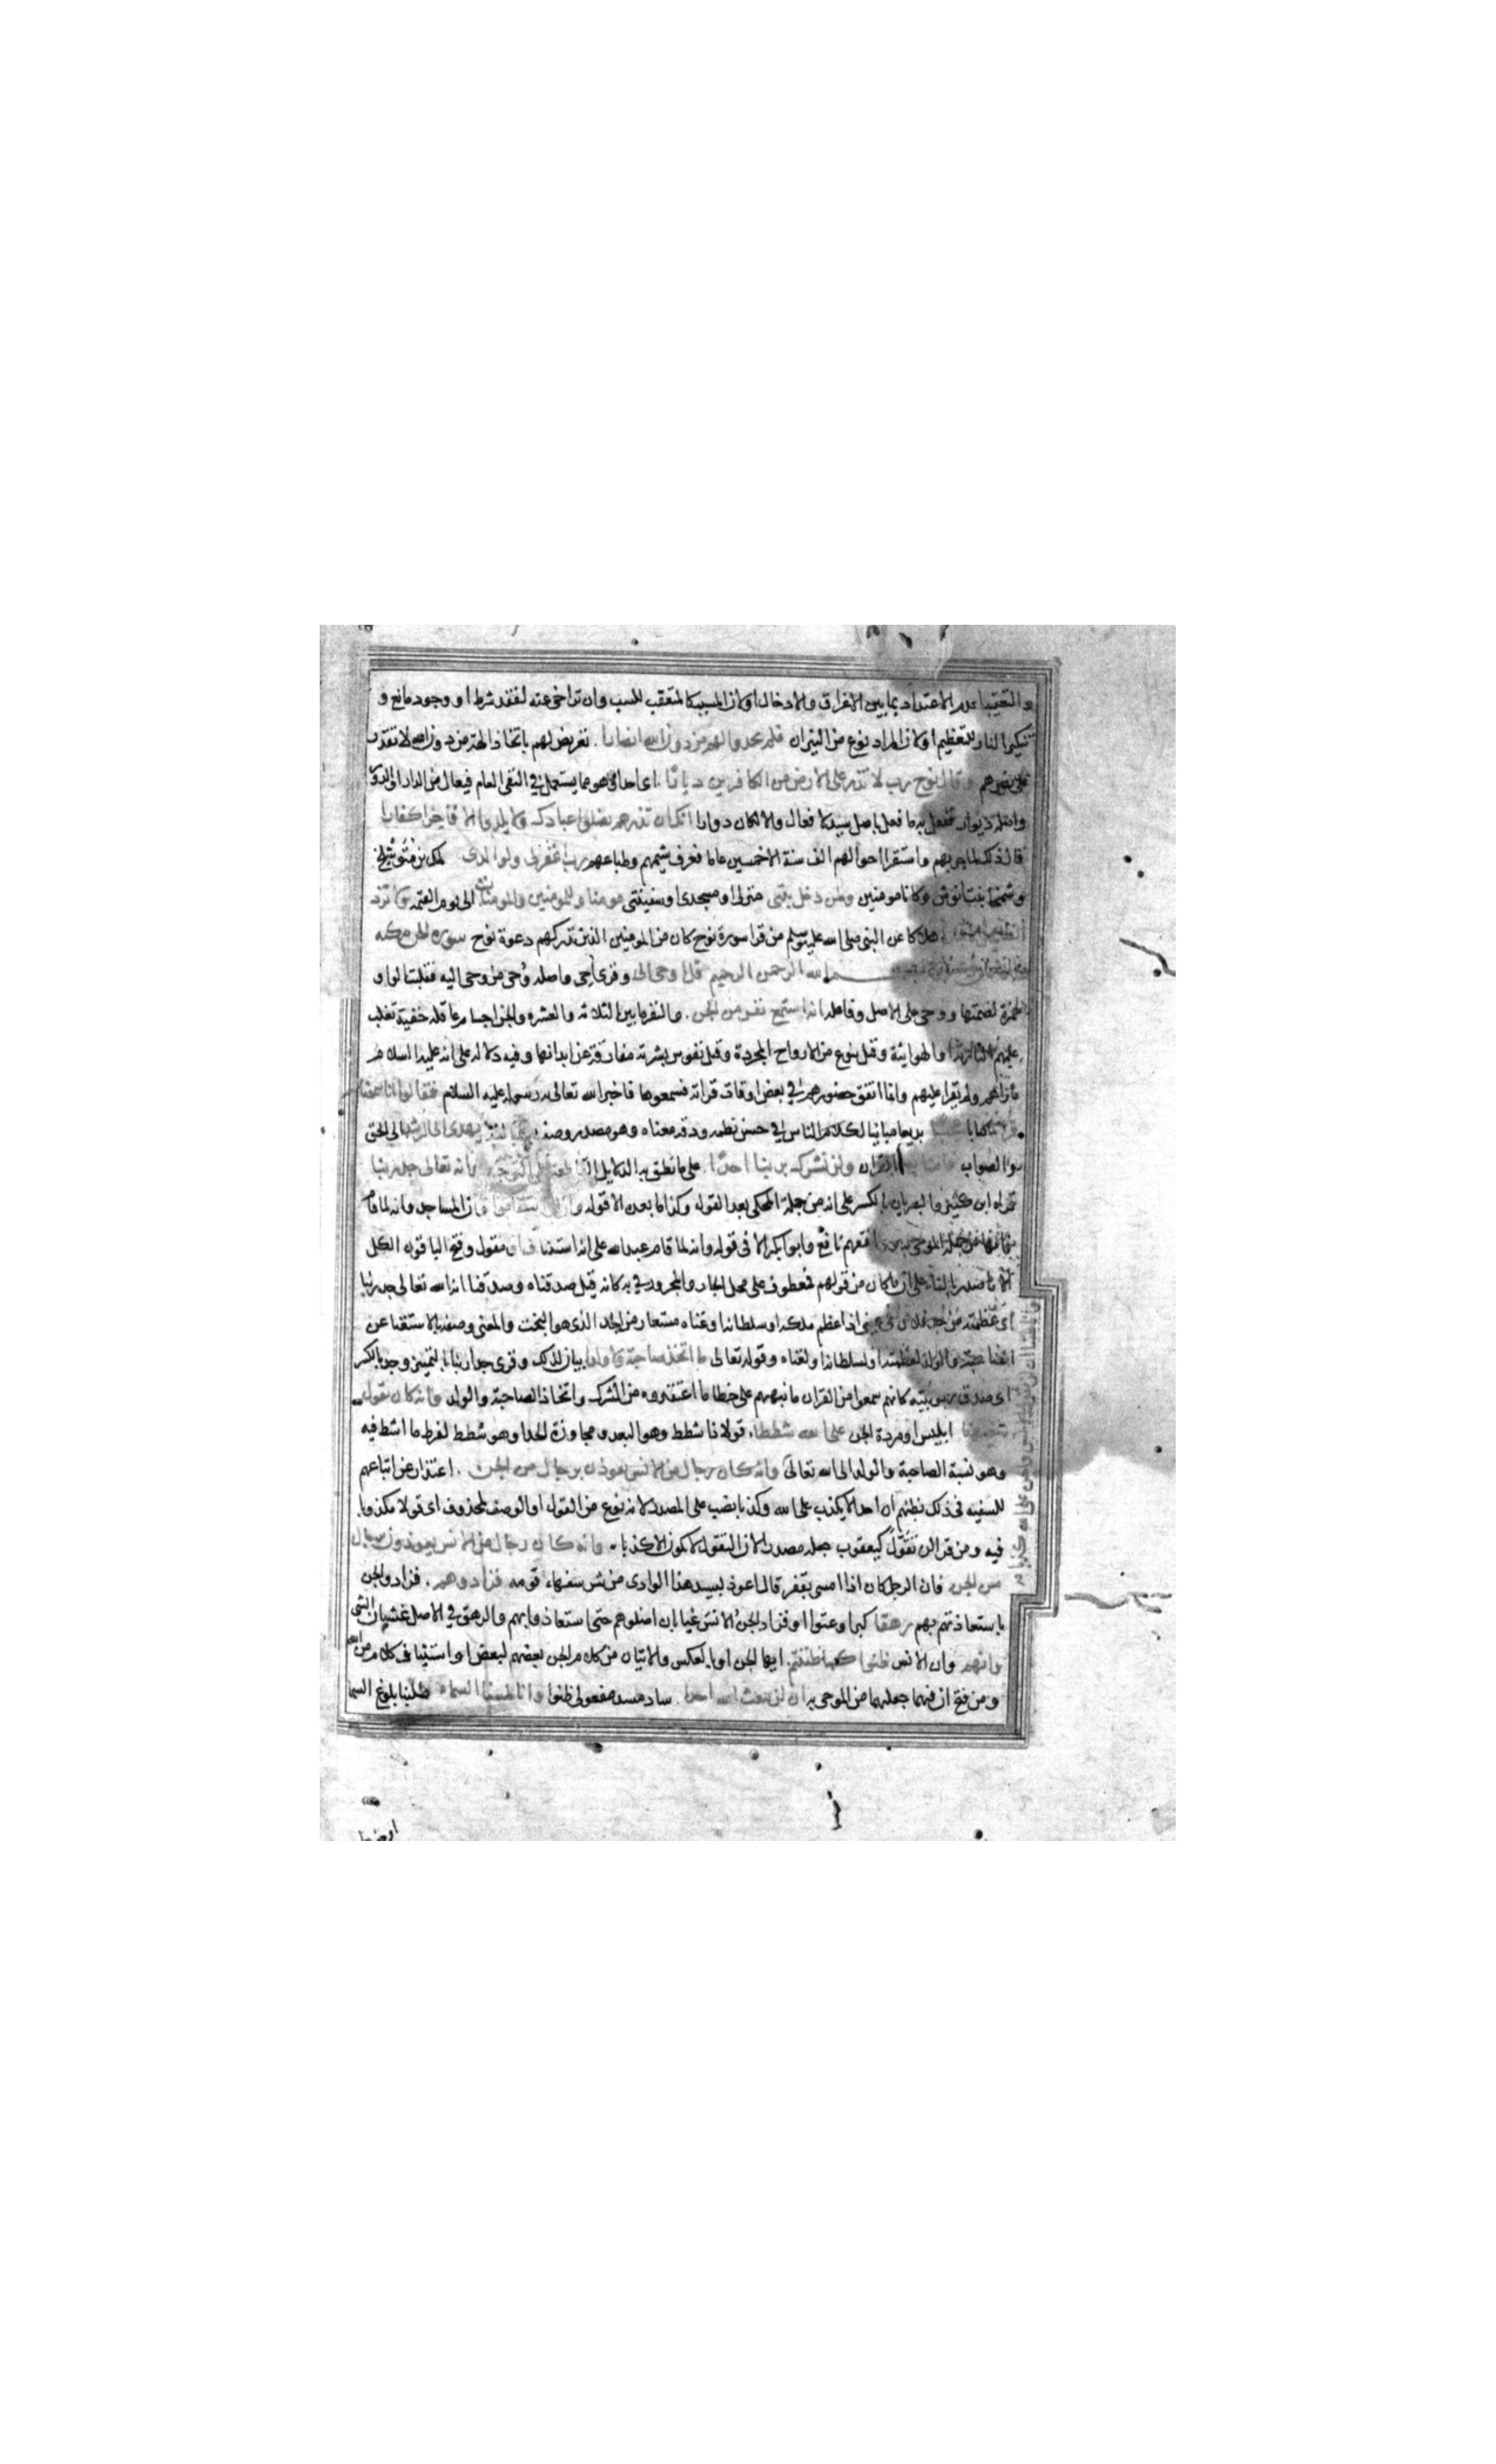 والتعقيب لعدم الاعتداد بما بين الاغراق والادخال او لان المسبب كالمتعقب للسبب وان تراخى عنه لفقد شرط او وجود مانع و
تنكير النار للتعظيم او لان المراد نوع من النيران فلم يجدوا لهم من دون الله انصارا تعريض لهم باتخاذ الهة من دون الله لا تقدر
على نصرهم وقال نوح رب لا تذر على الارض من الكافرين ديارا اى احدا وهو مما يستعمل في النفى العام فيعال من الدار او الدور
واصله ديوار ففعل به ما فعل باصل سيد لا فعال والا لكان دوارا انك ان تذرهم يضلوا عبادك ولا يلدوا الا فاجرا كفارا
قال ذلك لما جربهم واستقرا احوالهم الف سنة الا خمسين عاما فعرف شيمهم وطباعهم رب اغفر لى ولوالدى لمك بن متوشلخ
وشمخا بنت انوش وكانا مومنين ولمن دخل بيتى منزلى او مسجدى او سفينتى مومنا وللمومنين والمومنات الى يوم القيمه ولا تزد
الظالمين الا تبارا هلاكا عن النبى صلى الله عليه وسلم من قرا سورة نوح كان من المومنين الذين تدركهم دعوة نوح سوره الجن مكيه
بسم الله الرحمن الرحيم قل اوحى الى وقرى احى واصله وحى من وحى اليه فقلبت الواو
همزة لضمتها ووحى على الاصل وفاعله انه استمع نفر من الجن والنفر ما بين الثلاثه والعشره والجن اجسام عاقله خفية تغلب
عليهم النارية او الهوائية وقيل نوع من الارواح المجردة وقيل نفوس بشرية مفارقة عن ابدانها وفيه دلاله على انه عليه السلام
ما راهم ولم يقرا عليهم وانما اتفق حضورهم في بعض اوقات قراته فسمعوها فاخبر الله تعالى به رسوله عليه السلام فقالوا انا سمعنا
قرانا عجبا بديعا مباينا لكلام الناس في حسن نظمه ودقه معناه وهو مصدر وصف به يهدى الى الرشد الى الحق
والصواب فامنا به بالقران ولن نشرك بربنا احدا على ما نطق به الدلايل وانه تعالى جد ربنا
قراه ابن كثير والبصريان بالكسر على انه من جملة المحكى بعد القول وكذا ما بعده الا قوله وان لو استقاموا وان المساجد وانه لما قام
فانها من جملة الموحى به وافقهم نافع وابو بكر الا فى قوله وانه لما قام عبد الله على انه استئناف او مقول وفتح الباقون الكل
الا ما صدر بالفاء على ان ما كان من قولهم فمعطوف على محل الجار والمجرور في به كانه قيل صدقناه وصدقنا انه تعالى جد ربنا
اى عظمته من جد فلان فى عينى اذا عظم ملكه او سلطانه او غناه مستعار من الجد الذى هو البخت والمعنى وصفه بالاستغنا عن
الصاحبة والولد لعظمته او لسلطانه او لغناه وقوله تعالى ما اتخذ صاحبة ولا ولدا بيان لذلك وقرى جدا ربنا بالتمييز وجد بالكسر
اى صدق ربوبيته كانهم سمعوا من القران ما نبههم على خطا ما اعتقدوه من الشرك واتخاذ الصاحبة والولد وانه كان يقول
سفيهنا ابليس او مردة الجن على الله شططا قولا ذا شطط وهو البعد ومجاوزة الحد او هو شطط لفرط ما اشط فيه
وهو نسبة الصاحبة والولد الى الله تعالى وانه كان رجال من الانس يعوذون برجال من الجن اعتذار عن اتباعهم
للسفيه فى ذلك بظنهم ان احدا لا يكذب على الله وكذبا نصب على المصدر لانه نوع من القول او الوصف لمحذوف اى قولا مكذوبا
فيه ومن قرا لن تقول كيعقوب جعله مصدرا لان التقول لا يكون الا كذبا وانه كان رجال من الانس يعوذون برجال
من الجن فان الرجل كان اذا امسى بقفر قال اعوذ بسيد هذا الوادى من شر سفهاء قومه فزادوهم فزادوا الجن
باستعاذتهم بهم رهقا كبرا وعتوا او فزاد الجن الانس غيا بان اضلوهم حتى استعاذوا بهم والرهق في الاصل غشيان الشى
وانهم وان الانس ظنوا كما ظننتم ايها الجن او بالعكس والايتان من كلام الجن بعضهم لبعض او استيناف كلام من الله
ومن فتح ان فيهما جعلهما من الموحى به ان لن يبعث الله احدا ساد مسد مفعولى ظنوا وانا لمسنا السماء طلبنا بلوغ السما